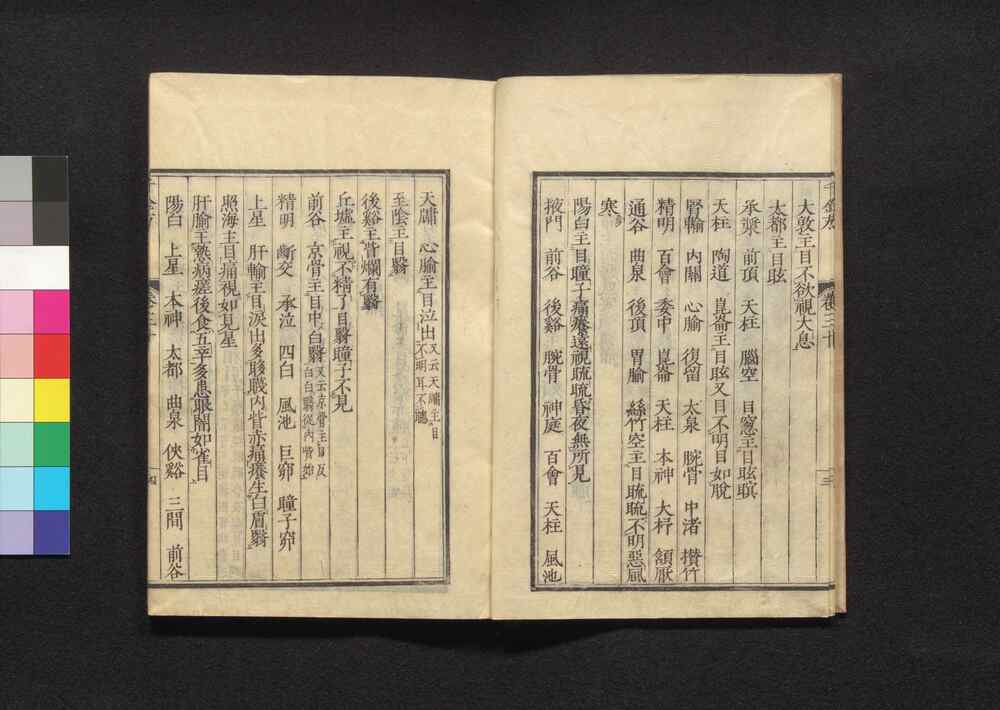 大敦主目不欲視大息
太都主目眩
承漿 前頂 天柱 腦空 目窓主目眩瞑
天柱 陶道 崑崙主目眩又目不明目如脫
腎輸 內關 心腧 復留 太泉 腕骨 中渚 攢竹
精明 百會 委中 崑崙 天柱 本神 大杼 頷厭
通谷 曲泉 後頂 胃腧 絲竹空主目䀮䀮不明惡風
寒
陽白主目瞳子痛癢遠視䀮䀮昏夜無所見
掖門 前谷 後谿 腕骨 神庭 百會 天柱 風池
天牖 心腧主目泣出又云天牖主目不明耳不聰
至陰主目翳
後谿主眥爛有翳
丘墟主視不精了目翳瞳子不見
前谷 京骨主目中白翳又云京骨主目反白白翳從內眥始
精明 齗交 承泣 四白 風池 巨窌 瞳子窌
上星 肝輸主目淚出多眵䁾內眥赤痛癢生白膚翳
照海主目痛視如見星
肝腧主熱病瘥後食五辛多患眼闇如雀目
陽白 上星 本神 太都 曲泉 俠谿 三間 前谷